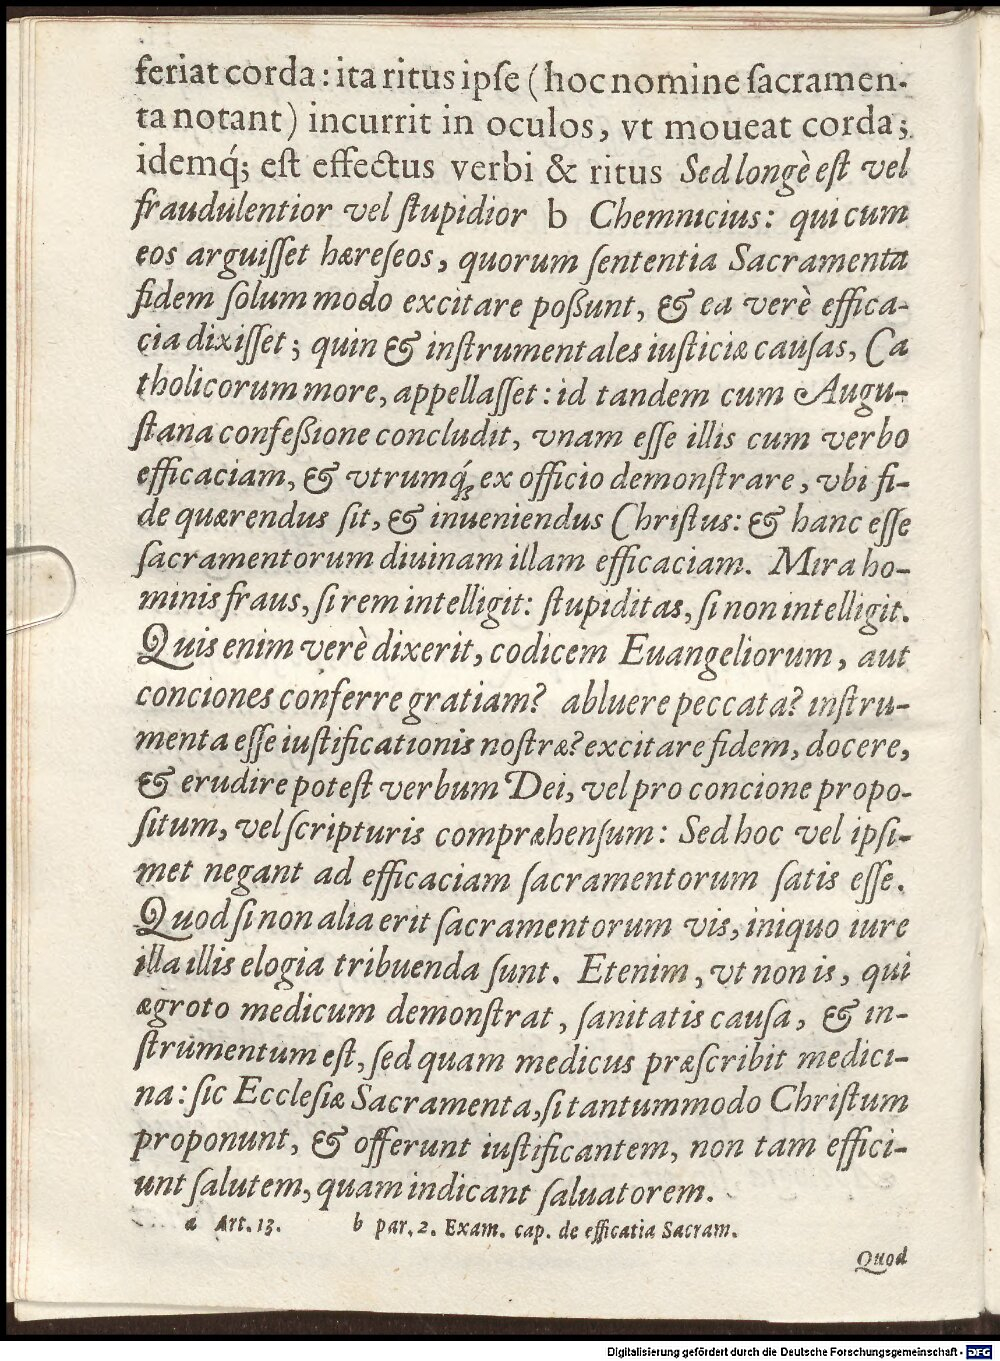 feriat corda: ita ritus ipſe (hoc nomine ſacramen-
ta notant) incurrit in oculos, vt moueat corda;
idemq́; eſt effectus verbi & ritus Sed longè eſt vel
fraudulentior vel ſtupidior b Chemnicius: qui cum
eos arguiſſet hæreſeos, quorum ſententia Sacramenta
fidem ſolummodo excitare poßunt, & ea verè effica-
cia dixiſſet; quin & inſtrumentales iuſticiæ cauſas, Ca
tholicorum more, appellaſſet: id tandem cum Augu-
ſtana confeßione concludit, vnam eſſe illis cum verbo
efficaciam, & vtrumq́; ex officio demonſtrare, vbi fi-
de quærendus ſit, & inueniendus Chriſtus: & hanc eſſe
ſacramentorum diuinam illam efficaciam. Mira ho-
minis fraus, ſi rem intelligit: ſtupiditas, ſi non intelligit.
Quis enim verè dixerit, codicem Euangeliorum, aut
conciones conferre gratiam? abluere peccata? inſtru-
menta eſſe iuſtificationis noſtræ? excitare fidem, docere,
& erudire poteſt verbum Dei, vel pro concione propo-
ſitum, vel ſcripturis compræhenſum: Sed hoc vel ipſi-
met negant ad efficaciam ſacramentorum ſatis eſſe.
Quod ſi non alia erit ſacramentorum vis, iniquo iure
illa illis elogia tribuenda ſunt. Etenim, vt non is, qui
ægroto medicum demonſtrat, ſanitatis cauſa, & in-
ſtrumentum eſt, ſed quam medicus præſcribit medici-
na: ſic Eccleſiæ Sacramenta, ſi tantummodo Chriſtum
proponunt, & offerunt iuſtificantem, non tam effici-
unt ſalutem, quam indicant ſaluatorem.
a Art. 13. b par. 2. Exam. cap. de efficatia Sacram.
Quod
Digitalisierung gefördert durch die Deutsche Forschungsgemeinschaft - DFG